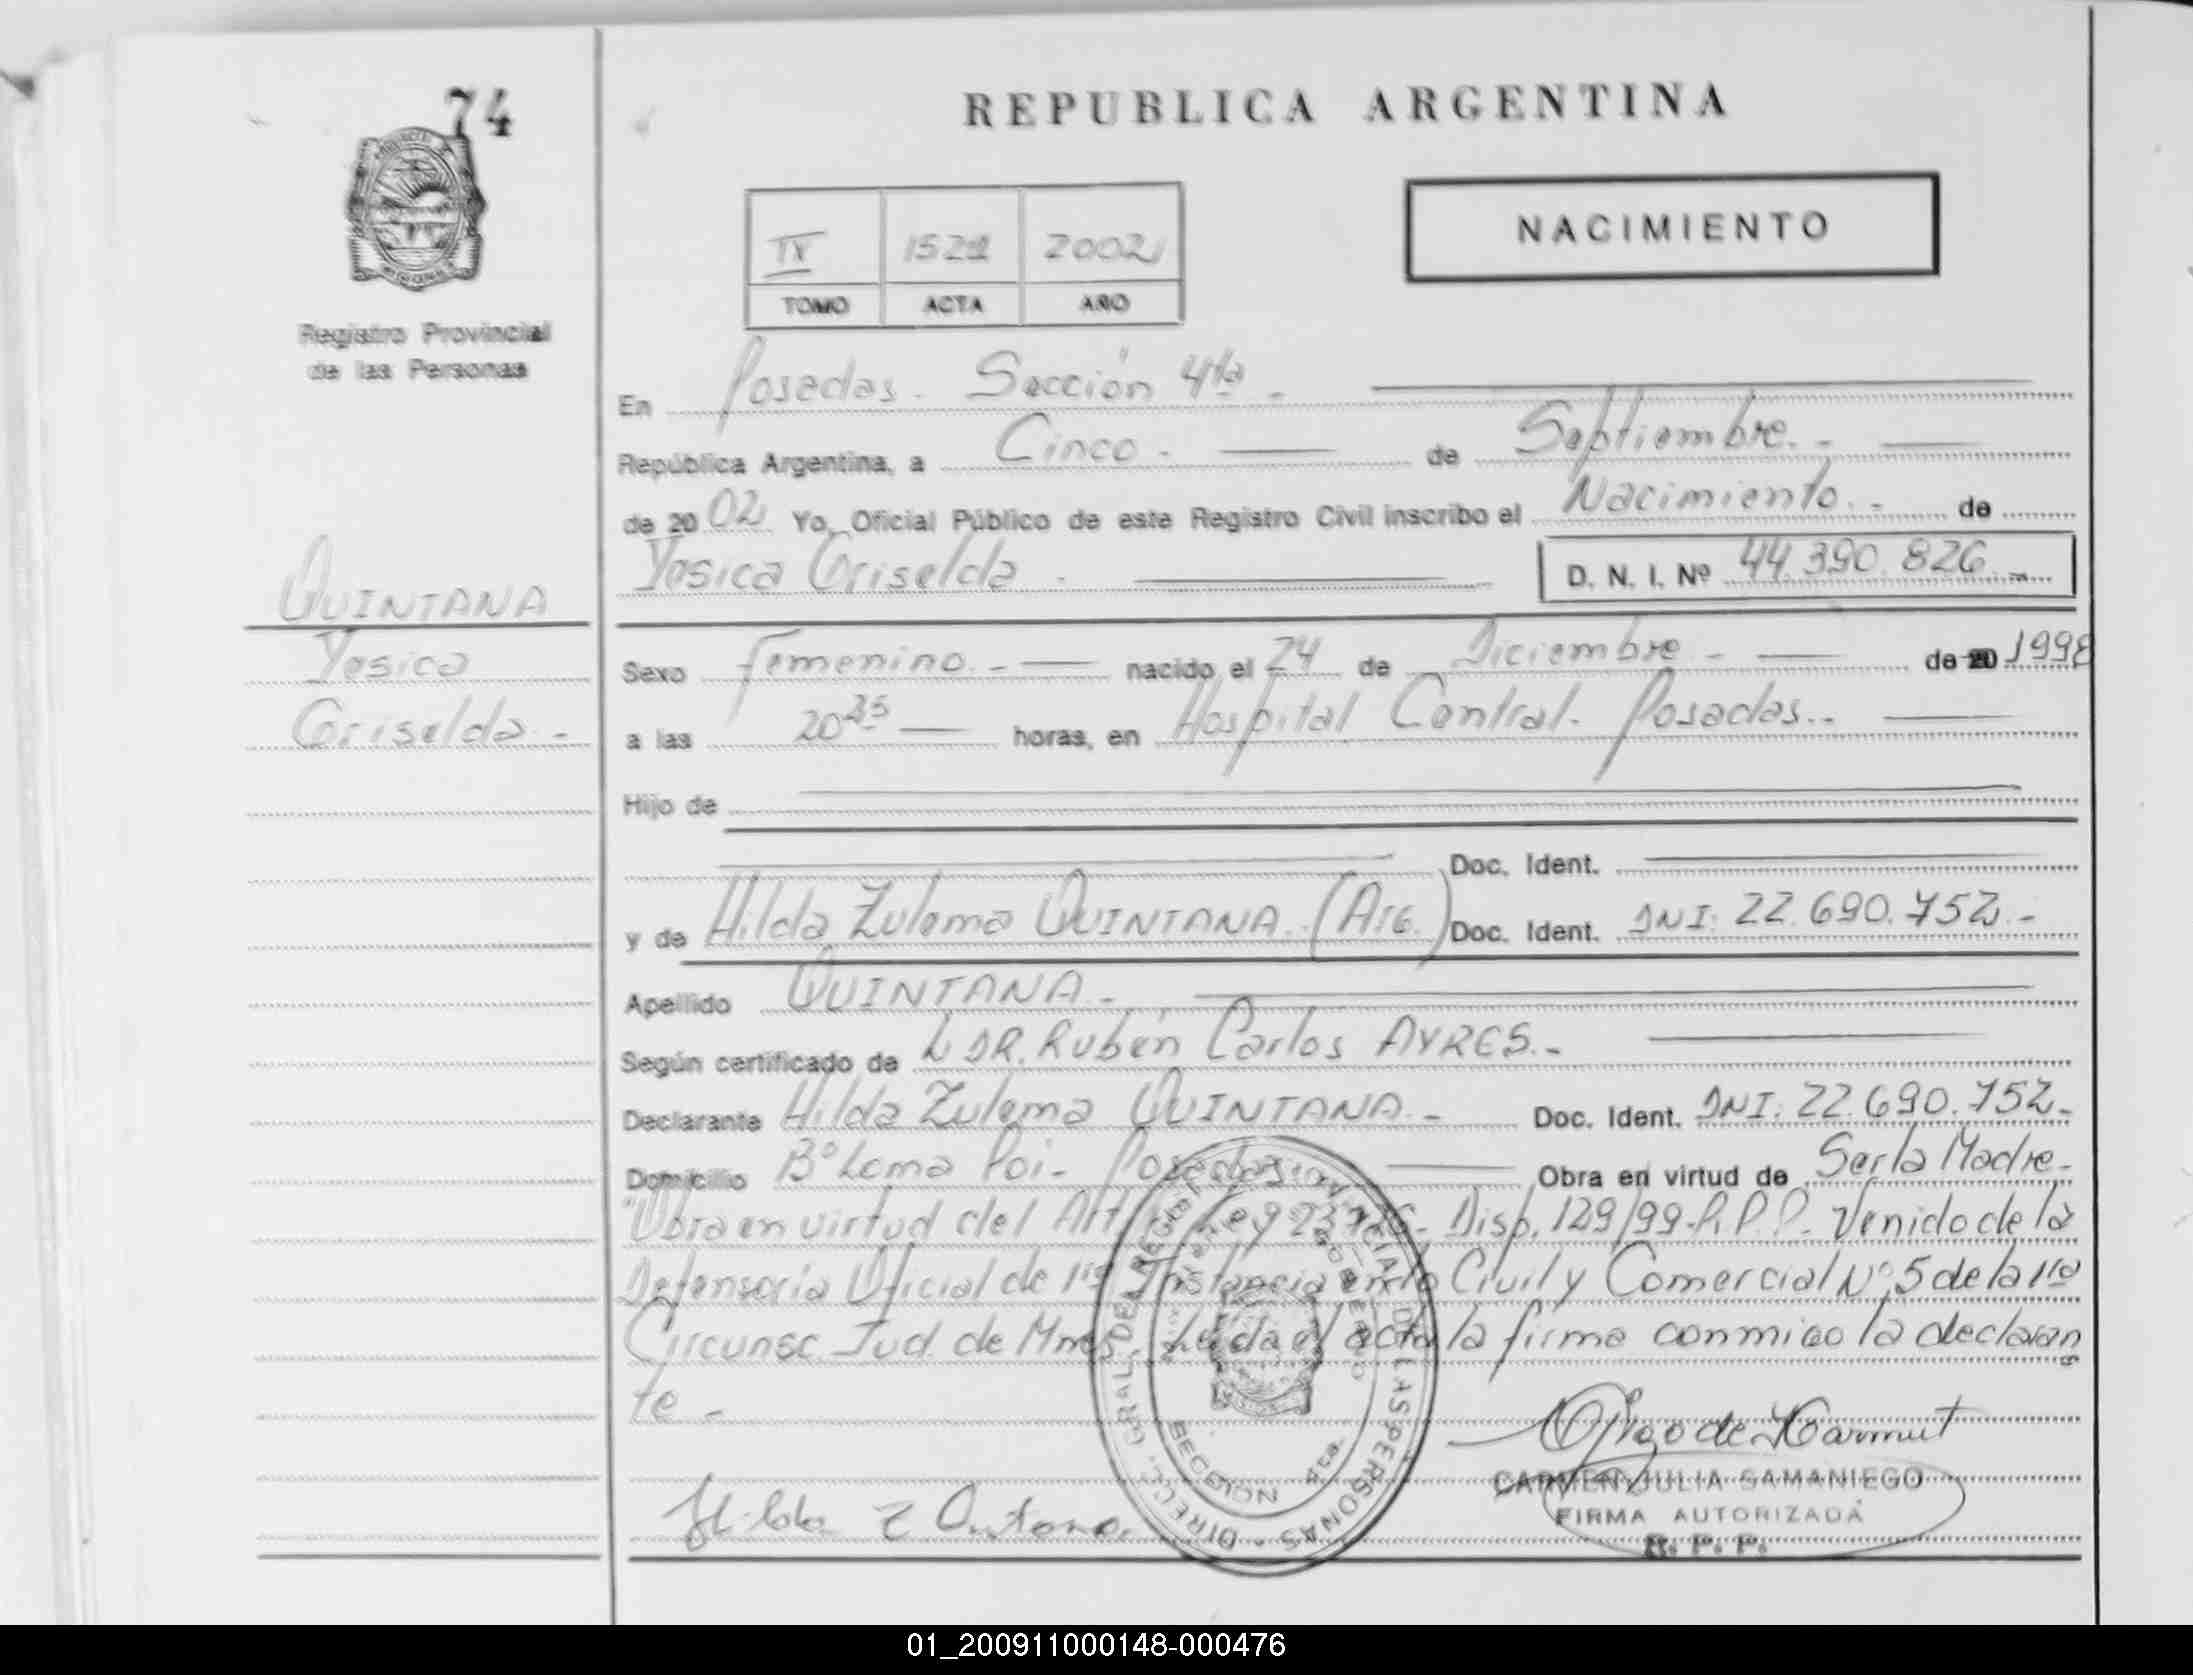 74
REPUBLICA ARGENTINA
NACIMIENTO
IV 1522 2002
TOMO ACTA AÑO
Registro Provincial
de las Personas
En Posadas. Sección 4ta -
República Argentina, a Cinco. - de Septiembre. -
de 2002 Yo, Oficial Público de este Registro Civil inscribo el Nacimiento. - de
Yesica Griselda. D. N. I. Nº 44.390.826. -
QUINTANA
Yesica
Griselda. -
Sexo Femenino. - nacido el 24 de Diciembre - de 20 1998
a las 20 25 horas, en Hospital Central. Posadas. -
Hijo de
Doc. Ident.
y de Hilda Zulema QUINTANA. (Arg.) Doc. Ident. DNI. 22.690.752. -
Apellido QUINTANA. -
Según certificado de DR. Rubén Carlos AYRES. -
Declarante Hilda Zulema QUINTANA. - Doc. Ident. DNI. 22.690.752. -
Domicilio Bº Loma Poi - Posadas Obra en virtud de Ser la Madre. -
Obra en virtud del Art Ley - Disp. 129/99-R.P.P. Venido de la
Defensoría Oficial de 1ra Instancia en lo Civil y Comercial Nº 5 de la 1ra
Circunsc. Jud. de Mnes. Leída el acta la firma conmigo la declaran
te -
DIRECC. GRAL. DEL REGISTRO PROVINCIAL DE LAS PERSONAS
SECCION 4ta.
Hilda Z Quintana.
CARMEN JULIA SAMANIEGO
FIRMA AUTORIZADA
R. P. P.
01_200911000148-000476